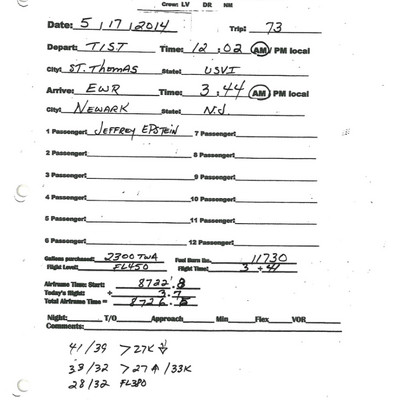 Crew: LV DR NM
Date: 5/17/2014 Trip: 73
Depart: TIST Time: 12:02 AM/ PM local
City: ST. THOMAS State: USVI
Arrive: EWR Time: 3:44 AM/ PM local
City: NEWARK State: N.J.
1 Passenger: JEFFREY EPSTEIN 7 Passenger:
2 Passenger: 8 Passenger:
3 Passenger: 9 Passenger:
4 Passenger: 10 Passenger:
5 Passenger: 11 Passenger:
6 Passenger: 12 Passenger:
Gallons purchased: 2300 TWA Fuel Burn lbs. 11730
Flight Level: FL450 Flight Time: 3 + 41
Airframe Time: Start: 8722.8
Today's flight: + 3.7
Total Airframe Time = 8726.5
Night: T/O Approach Min Flex VOR
Comments:
41/39 >27K ↓
38/32 >27↑/33K
28/32 FL380